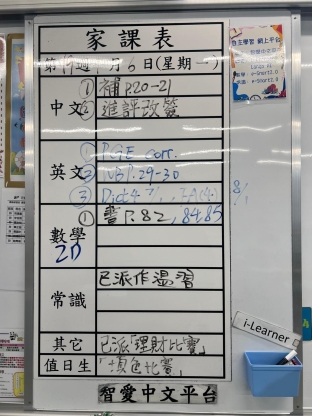 家課表
第19週 1月6日(星期一)
中文
① 補P.20-21
② 進評改簽
英文
① RGE corr.
② WB P.29-30
③ Dict 4
8/1
數學
2D
① 書P.82,84,85
常識
已派作溫習
其它
已派「理財比賽」
值日生
「填色比賽」
智愛中文平台
i-Learner
自主學習 網上平台